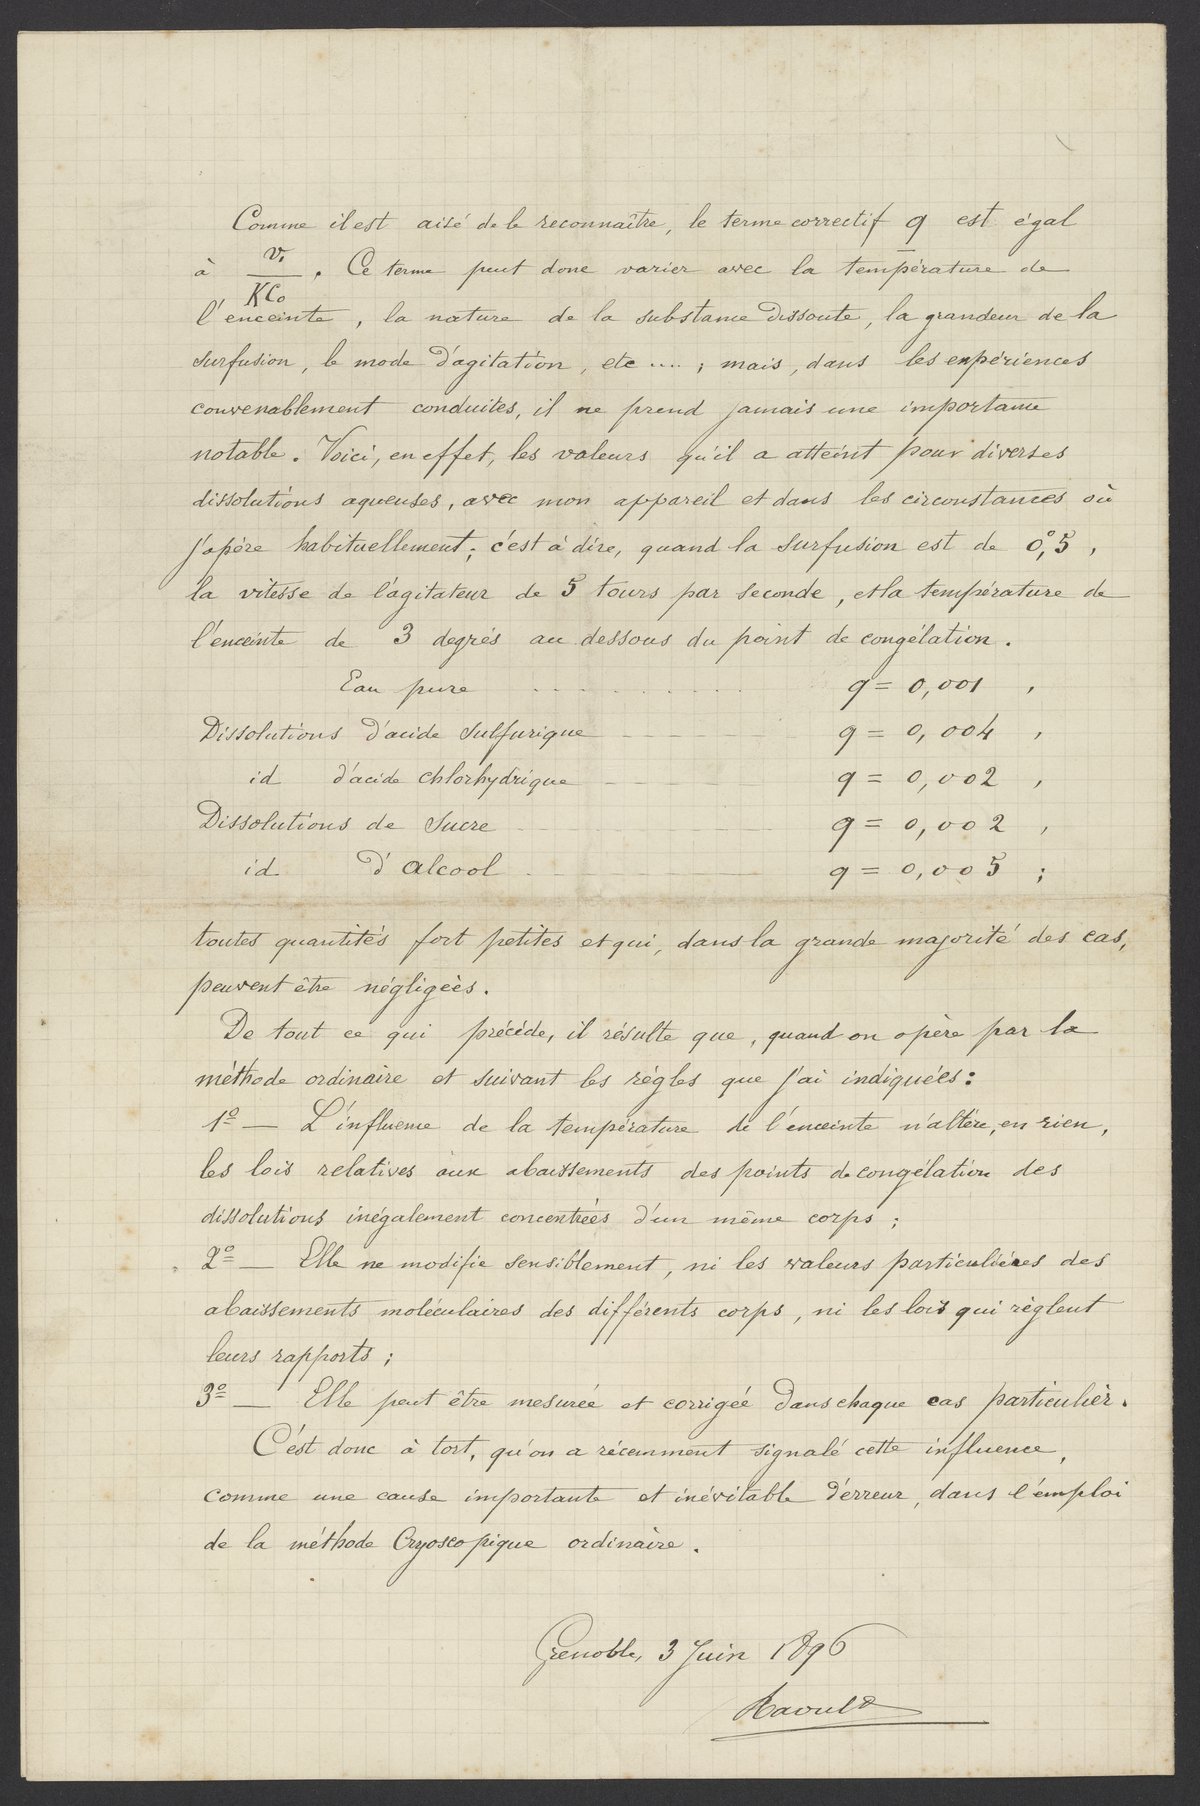 Comme il est aisé de le reconnaître, le terme correctif q est égal
à v₁/KC₀. Ce terme peut donc varier avec la température de
l'enceinte, la nature de la substance dissoute, la grandeur de la
surfusion, le mode d'agitation, etc....; mais, dans les expériences
convenablement conduites, il ne prend jamais une importance
notable. Voici, en effet, les valeurs qu'il a atteint pour diverses
dissolutions aqueuses, avec mon appareil et dans les circonstances où
j'opère habituellement; c'est à dire, quand la surfusion est de 0°,5,
la vitesse de l'agitateur de 5 tours par seconde, et la température de
l'enceinte de 3 degrés au dessous du point de congélation.
Eau pure .......... q = 0,001,
Dissolutions d'acide sulfurique ----- q = 0,004,
id d'acide chlorhydrique ----- q = 0,002,
Dissolutions de Sucre ----- q = 0,002,
id d'alcool ----- q = 0,005;
toutes quantités fort petites et qui, dans la grande majorité des cas,
peuvent être négligées.
De tout ce qui précède, il résulte que, quand on opère par la
méthode ordinaire et suivant les règles que j'ai indiquées:
1º — L'influence de la température de l'enceinte n'altère, en rien,
les lois relatives aux abaissements des points de congélation des
dissolutions inégalement concentrées d'un même corps;
2º — Elle ne modifie sensiblement, ni les valeurs particulières des
abaissements moléculaires des différents corps, ni les lois qui règlent
leurs rapports;
3º — Elle peut être mesurée et corrigée dans chaque cas particulier.
C'est donc à tort, qu'on a récemment signalé cette influence,
comme une cause importante et inévitable d'erreur, dans l'emploi
de la méthode Cryoscopique ordinaire.
Grenoble, 3 Juin 1896
Raoult